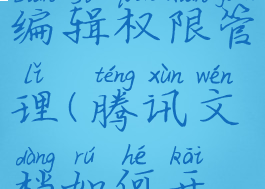 编辑权限管
lǐ téng xùn wén
理(腾讯文
dàng rú hé kāi
档如何开